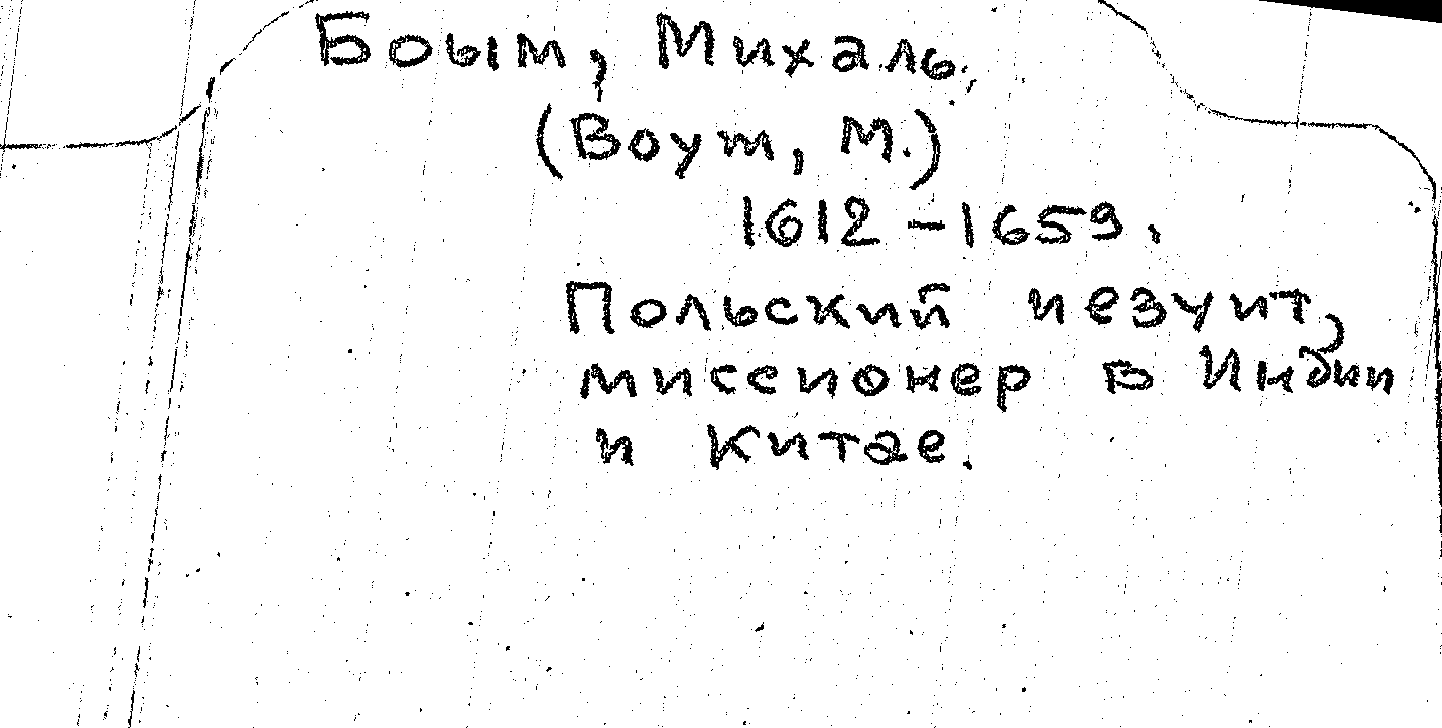 Боым, Михаль,
(Boym, M.)
1612-1659.
Польский иезуит,
миссионер в Индии
и Китае.